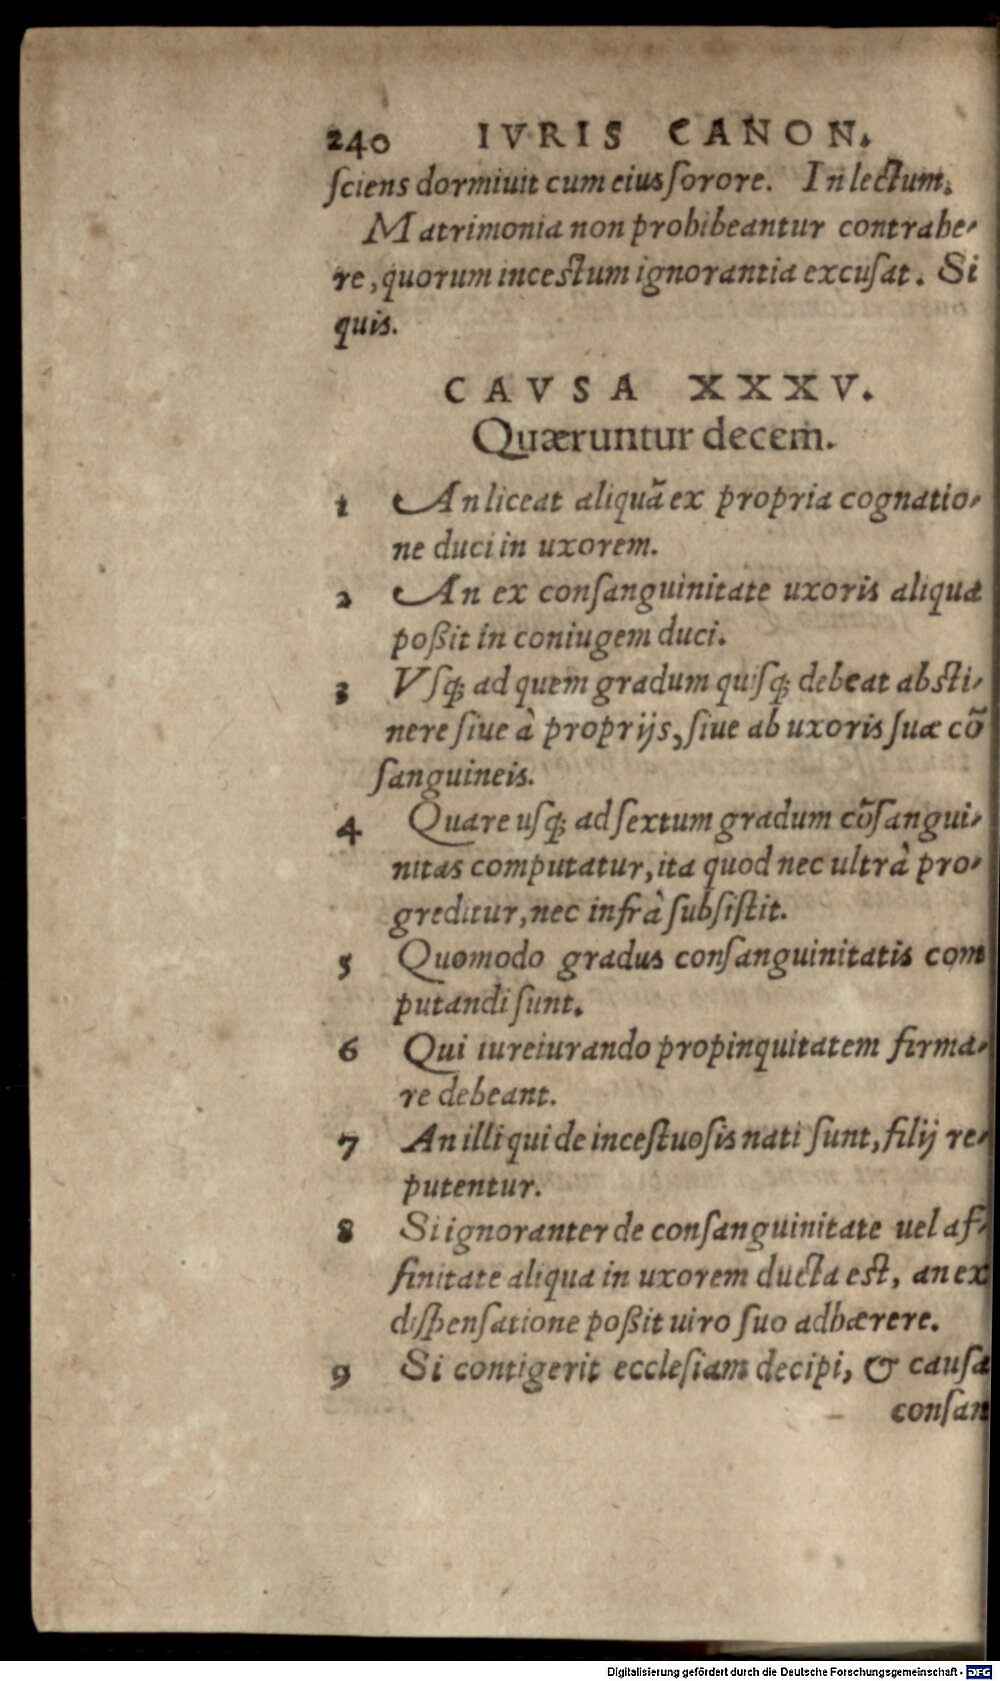 240 IVRIS CANON.
ſciens dormiuit cum eius ſorore. In lectum.
Matrimonia non prohibeantur contrahe-
re, quorum inceſtum ignorantia excuſat. Si
quis.
CAVSA XXXV.
Quæruntur decem.
1 An liceat aliquā ex propria cognatio-
ne duci in uxorem.
2 An ex conſanguinitate uxoris aliqua
poßit in coniugem duci.
3 Vſq; ad quem gradum quiſq; debeat abſti-
nere ſiue à proprijs, ſiue ab uxoris ſuæ cō
ſanguineis.
4 Quare uſq; ad ſextum gradum cōſangui-
nitas computatur, ita quod nec ultrà pro-
greditur, nec infrà ſubſiſtit.
5 Quomodo gradus conſanguinitatis com
putandi ſunt.
6 Qui iureiurando propinquitatem firma-
re debeant.
7 An illi qui de inceſtuoſis nati ſunt, filij re-
putentur.
8 Si ignoranter de conſanguinitate uel af-
finitate aliqua in uxorem ducta eſt, an ex
diſpenſatione poßit uiro ſuo adhærere.
9 Si contigerit eccleſiam decipi, & cauſa
conſan
Digitalisierung gefördert durch die Deutsche Forschungsgemeinschaft - DFG